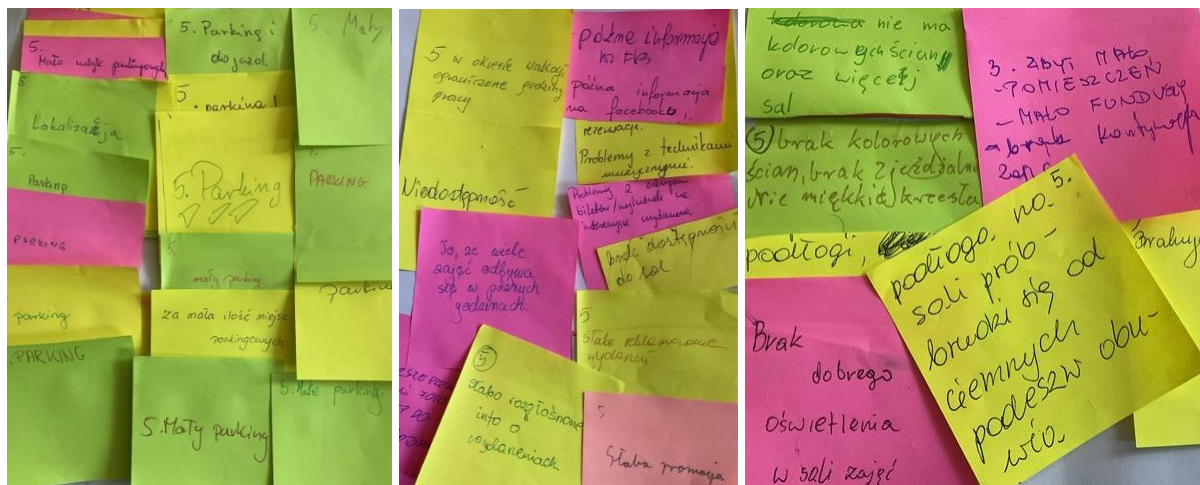 5.
Mało miejsc parkingowych
5. Parking i
dojazd.
5. Mały
5
Lokalizacja
5.
. parking!
5.
Parking
5. Parking
PARKING
PARKING
5.
mały parking
parking
za mała ilość miejsc
parkingowych
parkin
.PARKING
5. Mały parking
5. Małe parkingi
5 w okresie wakacji
ograniczone godziny
pracy
późne informacje
na FB
późna informacja
na facebooku,
rezerwacje.
Problemy z technikami
muzycznymi.
Niedostępność
Problemy z
biletów
brak dostępności
do sal
To, że wiele
zajęć odbywa
się w późnych
godzinach.
5
słabe reklamowanie
wydarzeń
5
słabo rozgłośnione
info o
wydarzeniach.
5
Słaba promocja
nie ma
kolorowych ścian
oraz więcej
sal
3. ZBYT MAŁO
-POMIESZCZEŃ
- MAŁO FUNDUSZ
- brak
5 brak kolorowych
ścian, brak zjeżdżalni
nie miękkie krzesła
podłogi,
5.
podłoga. na.
sali prób -
brudzi się od
ciemnych
podeszw obu-
wia.
Brakuj
Brak
dobrego
oświetlenia
w sali zajęć